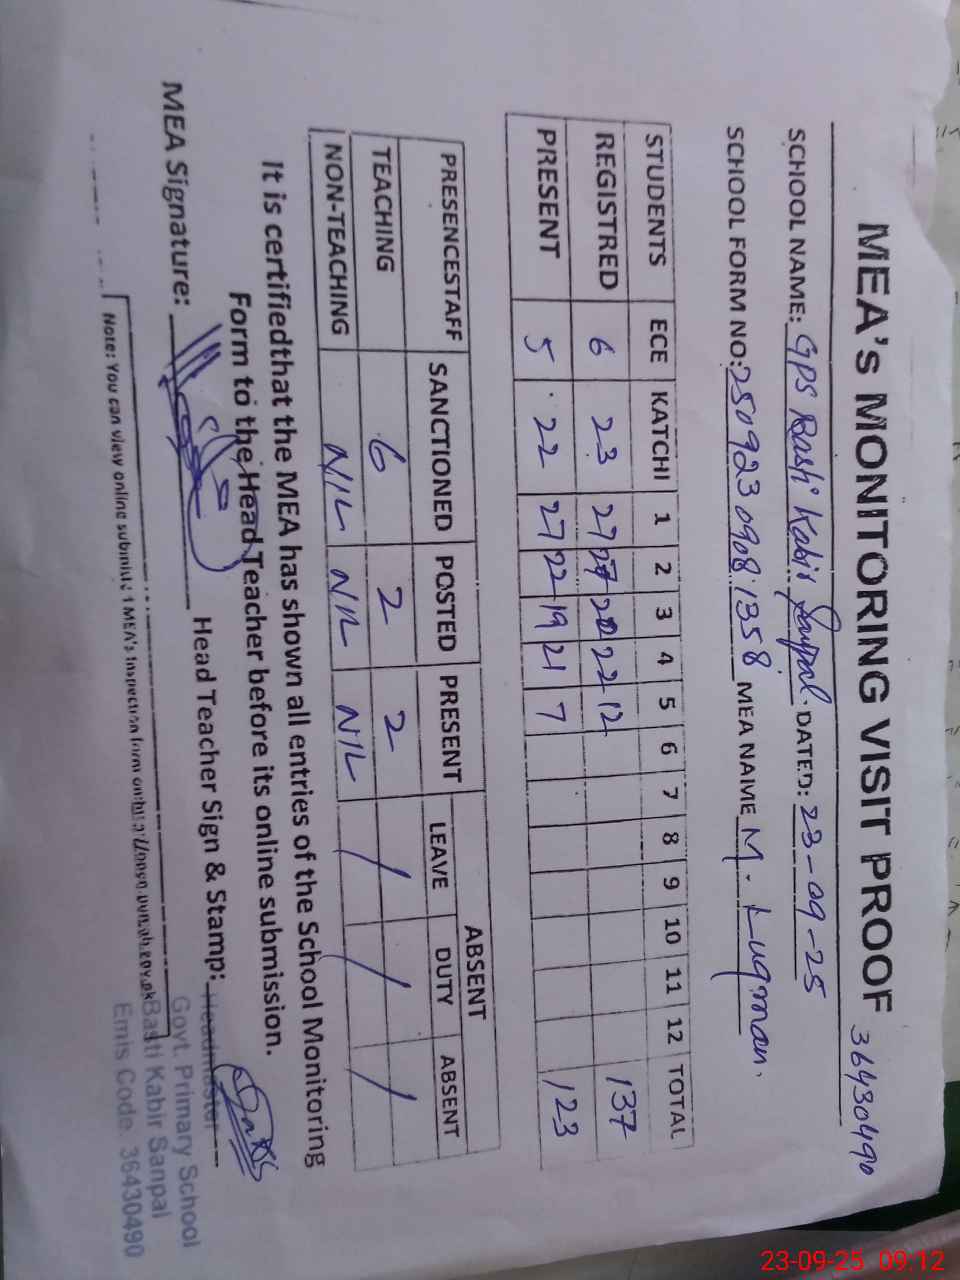 MEA's MONITORING VISIT PROOF 36430490
SCHOOL NAME: GPS Basti Kabir Sanpal. DATED: 23-09-25
SCHOOL FORM NO: 250923 0908 1358 MEA NAME M. Luqman.
STUDENTS ECE KATCHI 1 2 3 4 5 6 7 8 9 10 11 12 TOTAL
REGISTRED 6 23 27 27 20 22 12 137
PRESENT 5 22 27 22 19 21 7 123
PRESENCESTAFF SANCTIONED POSTED PRESENT ABSENT
LEAVE DUTY ABSENT
TEACHING 6 2 2 / / /
NON-TEACHING NIL NIL NIL
It is certifiedthat the MEA has shown all entries of the School Monitoring
Form to the Head Teacher before its online submission.
MEA Signature: Head Teacher Sign & Stamp:
Headmaster
Govt. Primary School
Basti Kabir Sanpal
Emis Code. 36430490
Note: You can view online MEA's Inspection form on
23-09-25 09:12